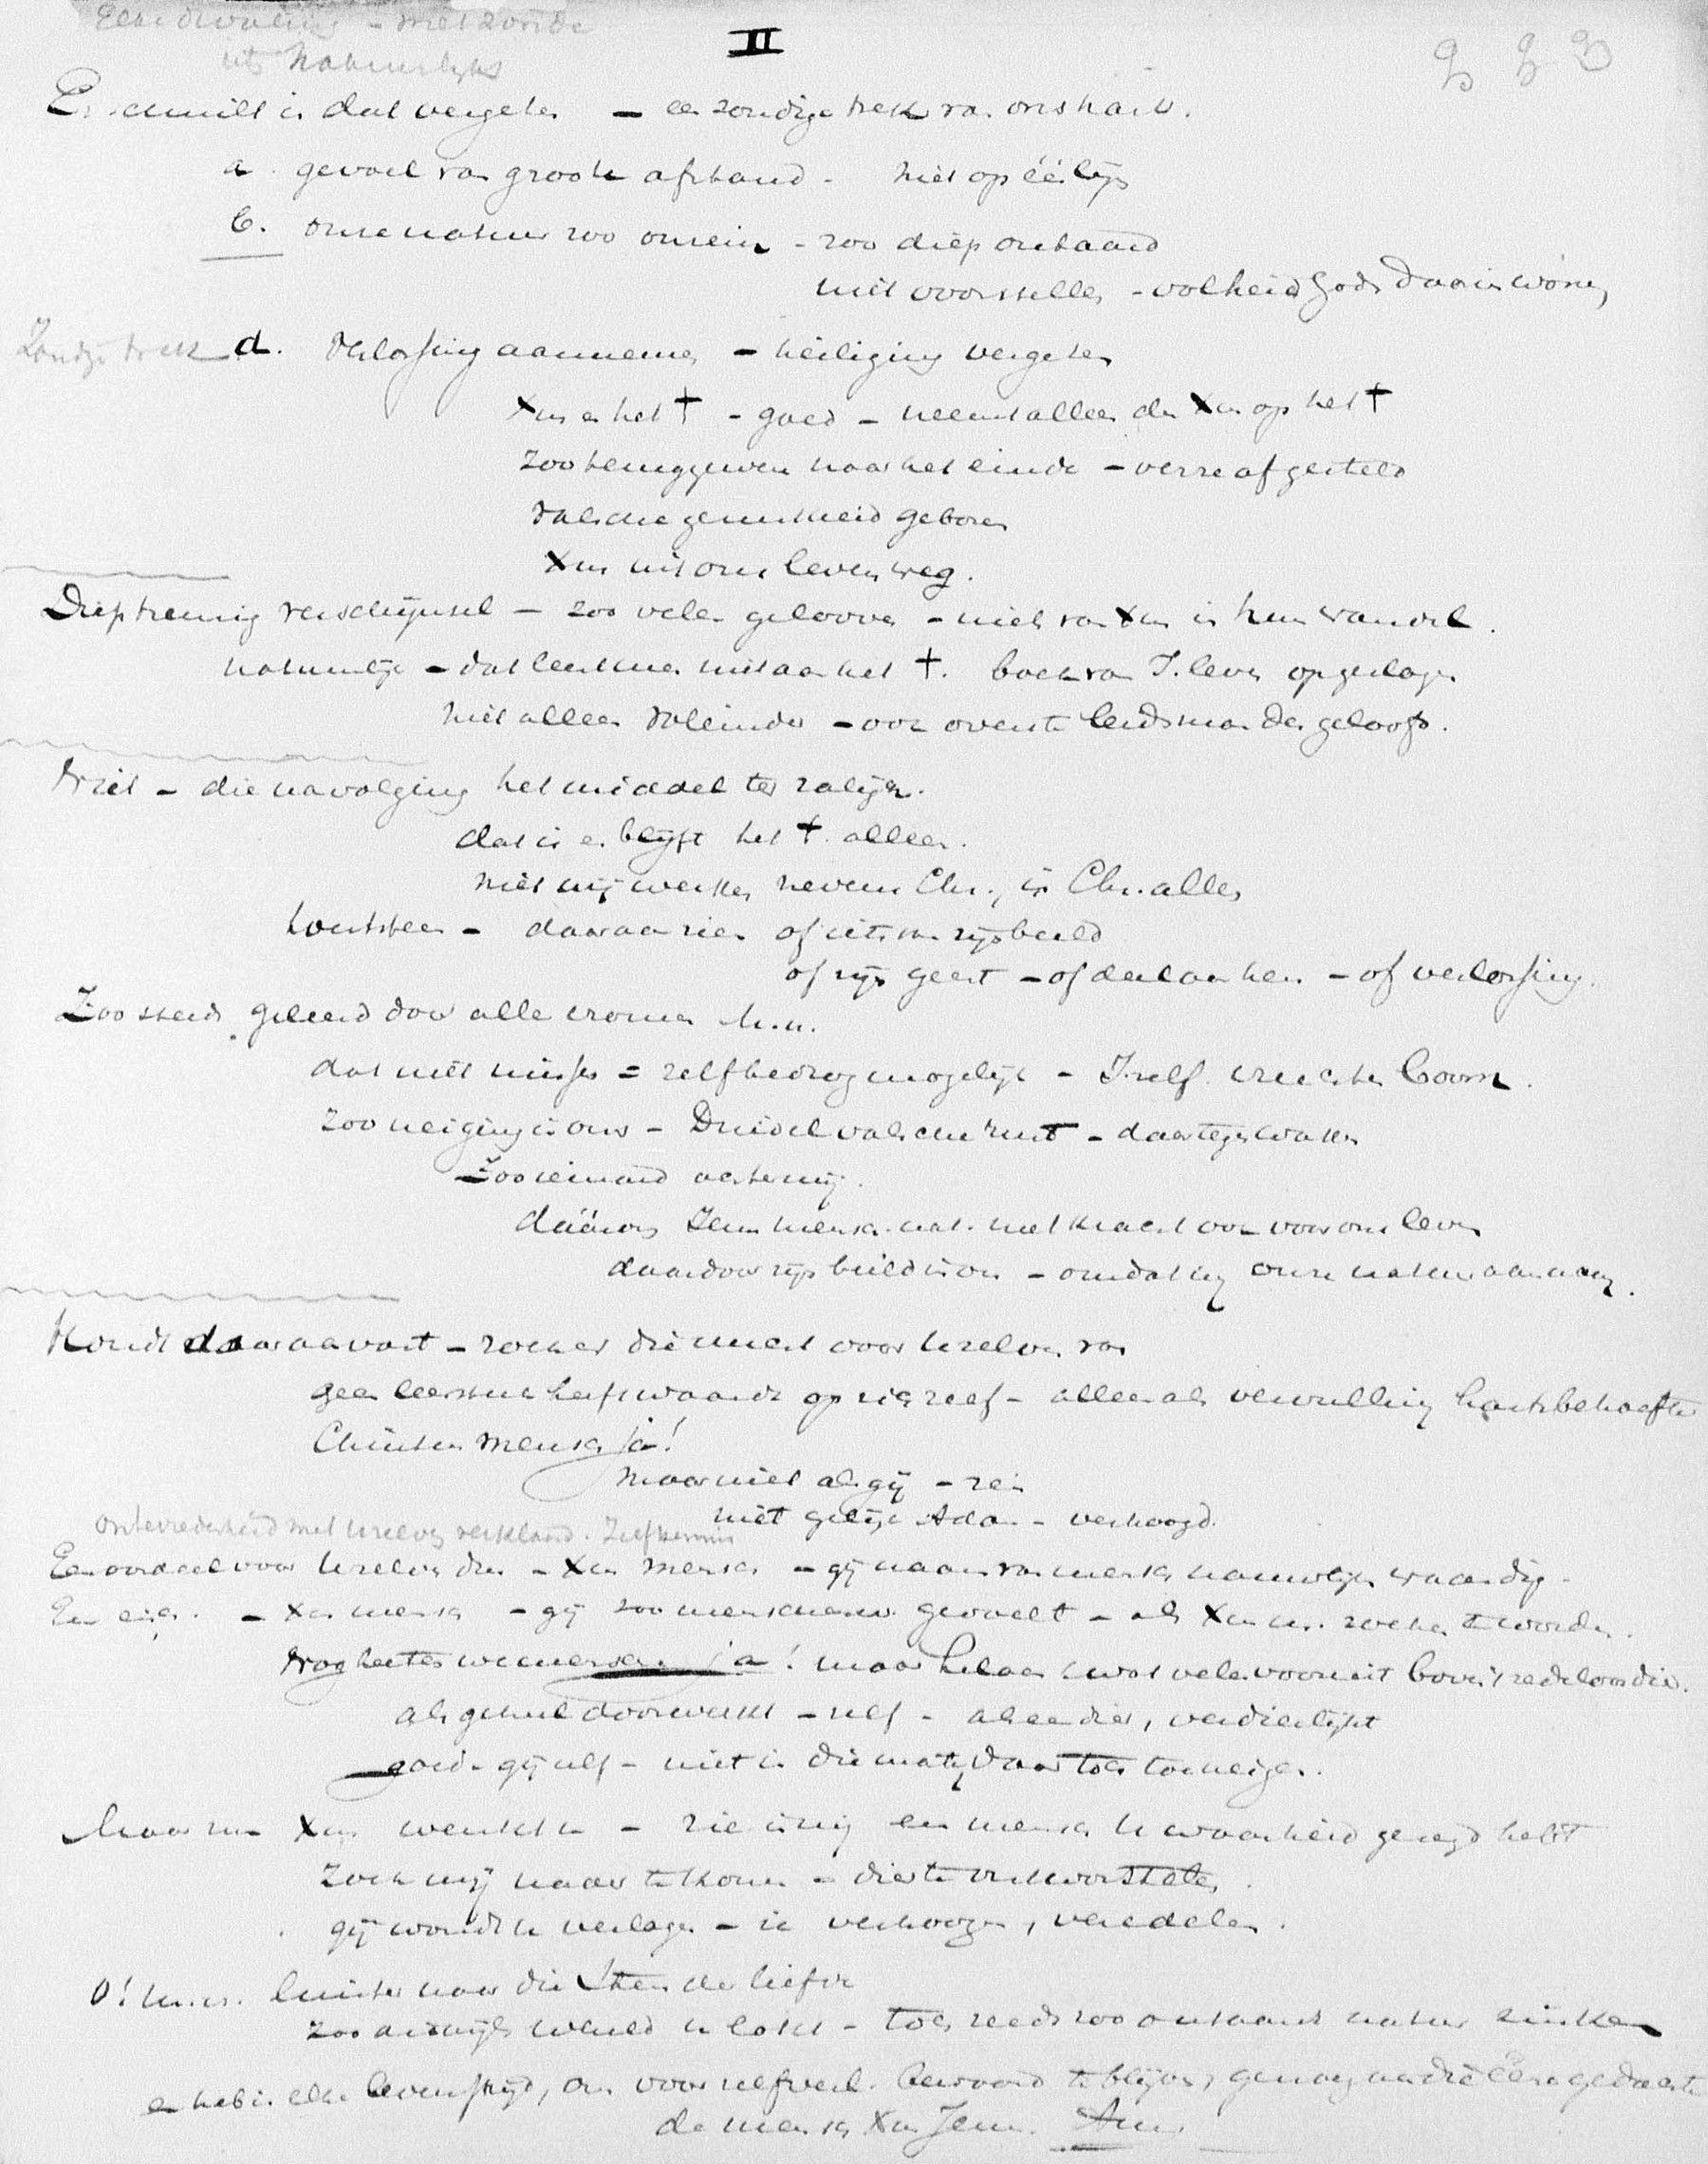 Elke dwaling - met zonde
iets natuurlijks
II
En schuilt in dat vergeten - een zondige trek van ons hart.
a. gevoel van groote afstand - niet op één lijn
b. onze natuur zoo onrein - zoo diep ontaard
niet voorstellen - volheid Gods daarin wone,
Zondige trek d. Verlossing aannemen - heiliging vergeten
Xus en het † - goed - neemt alleen den Xus op het †
zoo teruggeven naar het einde - verre af gesteld
valsche gerustheid geboren
Xus uit ons leven weg.
Diep treurig verschijnsel - zoo velen gelooven - niets van Xus in hun wandel.
natuurlijk - dat leert men niet aan het †. boek van J. leven opgeslagen
niet alleen Voleinder - ook overste leidsman des geloofs.
Niet - die navolging het middel ter zaligh.
dat is en blijft het † alleen.
niet wij werken nevens Chr., in Chr. alles
toetssteen - daaraan zien of iets van zijn beeld
of zijn geest - of deel aan hem - of verlossing.
Zoo steeds geleerd door alle vromen
dat niet missen = zelfbedrog mogelijk - J. zelf vruchten boom.
zoo neiging in ons - Duivel valsche rust - daartegen waken
Zoo iemand achter mij.
dáárom Jezus mensch. nat. met kracht ook voor ons leven
daardoor zijn beeld in ons - omdat hij onze natuur aannam.
Houdt daaraan vast - zoeken die vrucht voor uzelven van
geen leerstuk heeft waarde op zich zelf - alleen als vervulling hartsbehoeften
Christus mensch ja!
maar niet als gij - rein
niet gelijk Adam - verhoogd.
Ontevredenheid met uzelven verklaard. Zelfkennis
Een oordeel voor uzelven dus - Xus mensch - gij naam van mensch nauwelijks waardig -
- Xus mensch - gij zoo gevoelt - als Xus m. zoeken te worden.
Nog heeten we mensch ja! maar helaas wat velen vooruit boven 't redeloos dier.
als geheel doorwerkt - zelf - als een dier, verdierlijkt
goed - gij zelf - niet in die mate, daar toch toe neigen.
Maar nu Xus wenkt u - zie in mij een mensch u waarheid gezegd heeft
Zoek mij naar te komen -
gij wordt u verlagen - ik verhoogen, veredelen.
O! m.h. luister naar die stem der liefde
zoo dikwijls wereld u lokt - toch reeds zoo ontaarde natuur zinken
en heb in elken levensstrijd, om voor zelfverl. bewaard te blijven, genoeg aan die ééne gedachte
de mensch Xus Jezus. Amen